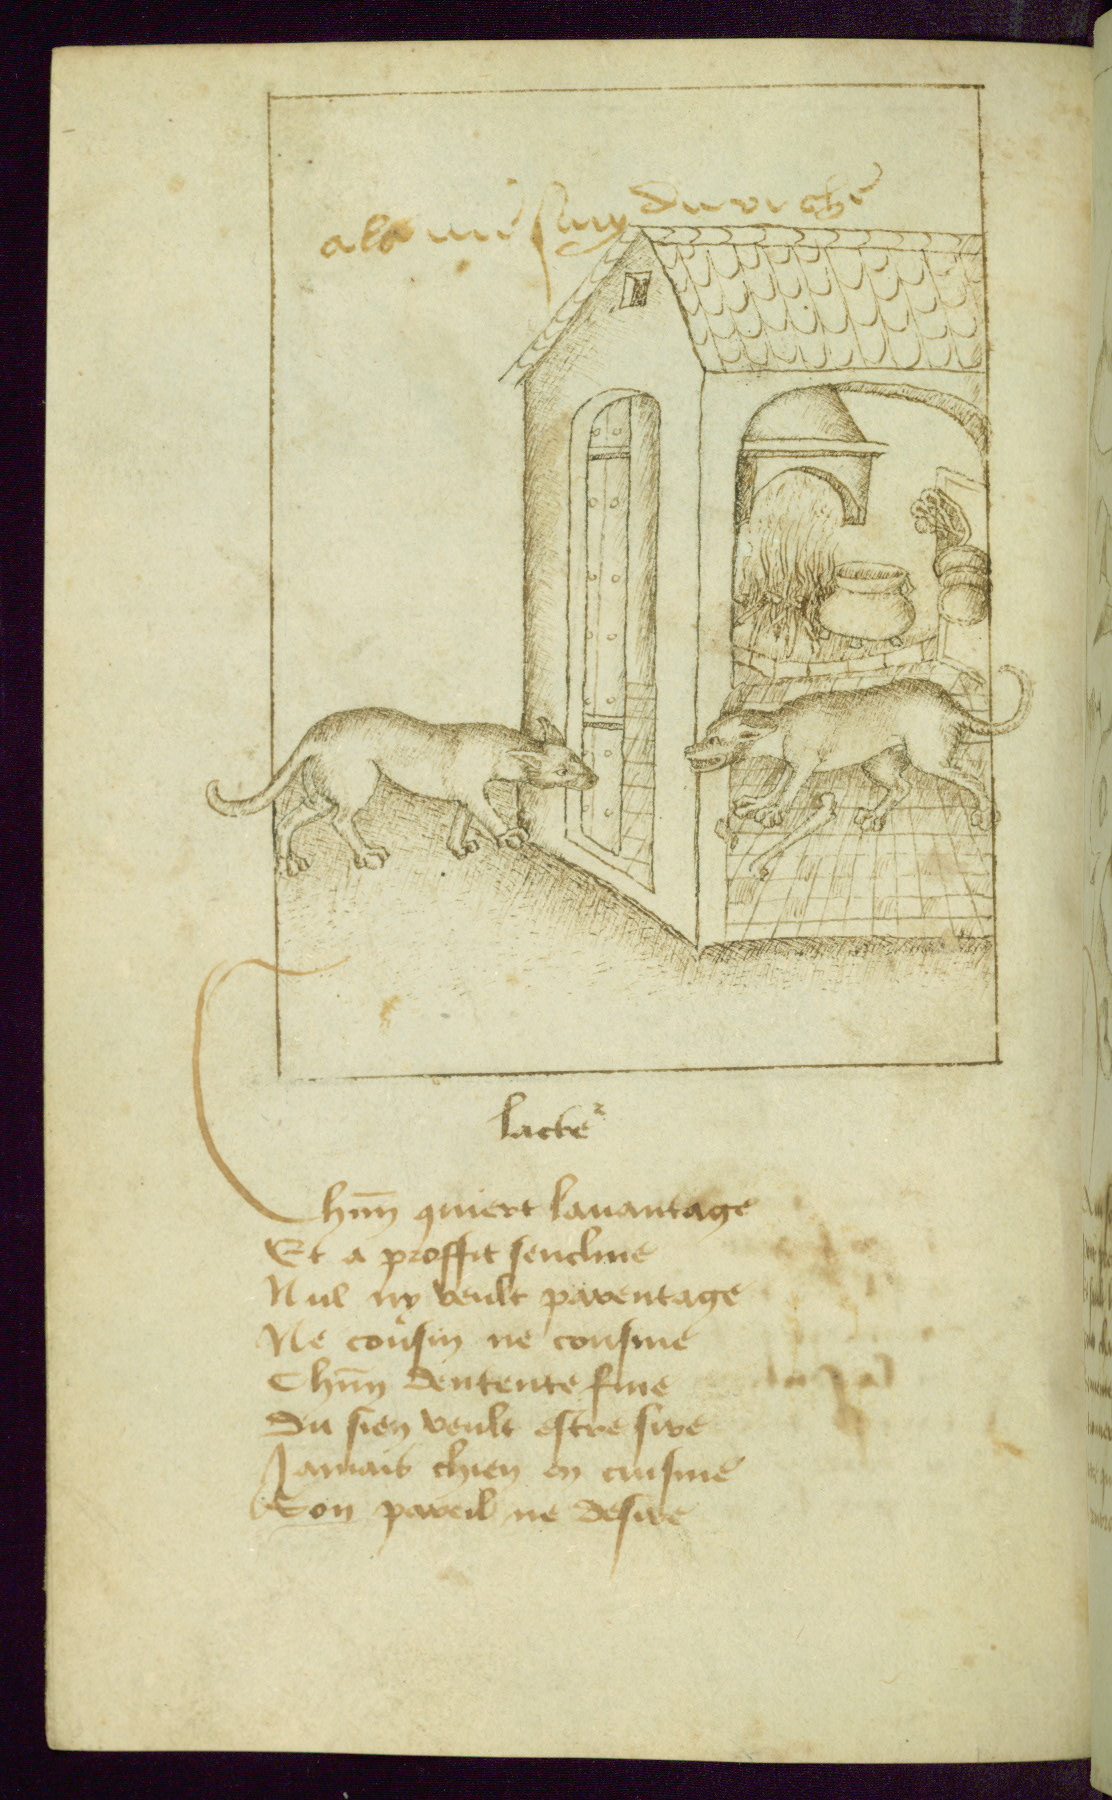 du riche
lacte²
Chũn quiert lauantage
Et a proffit sencline
Nul ny veult parentage
Ne cousin ne cousine
Chũn dentente fine
Du sien veult estre sire
Jamais chien en cuisine
Son pareil ne desire